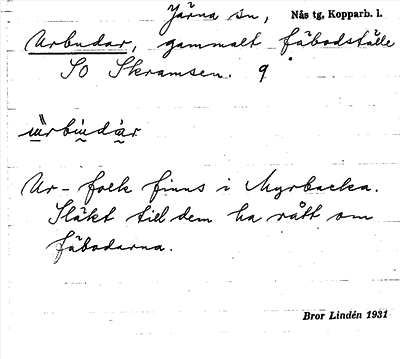 Järna sn, Nås tg, Kopparb. l.
Urbudar, gammalt fäbodställe
SO Skramsen. 9
ùrbùdàr
Ur-folk finns i Myrbacka.
Släkt till dem ha rått om
fäbodarna.
Bror Lindén 1931